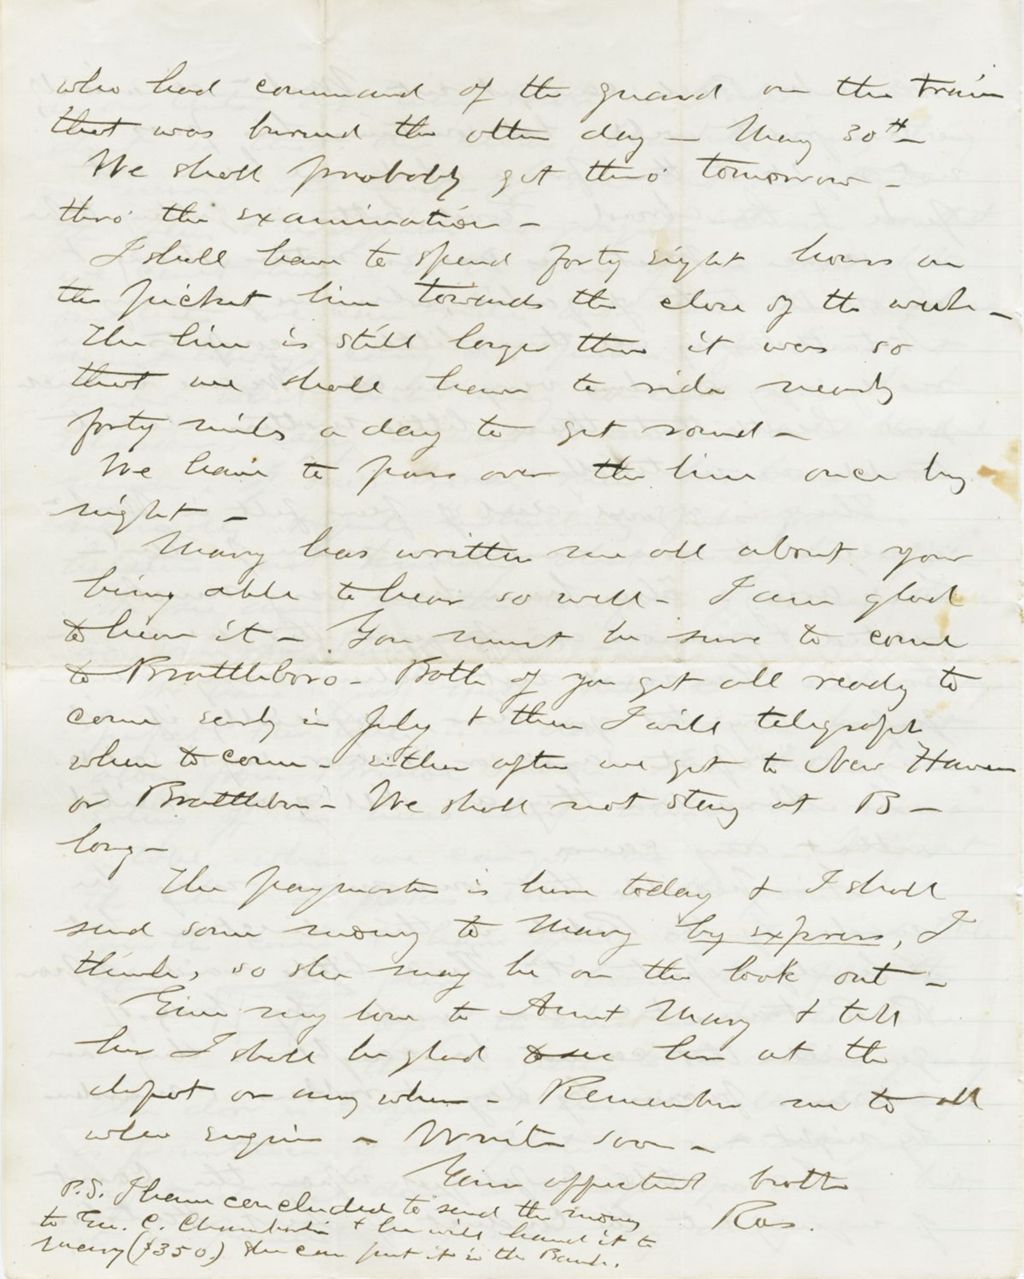 who had command of the guard on the train
that was burned the other day — May 30th —
We shall probably get thro' tomorrow —
thro' the examination —
I shall have to spend forty eight hours on
the picket line towards the close of the week —
The line is still longer than it was so
that we shall have to ride nearly
forty miles a day to get round —
We have to pass over the line once by
night —
Mary has written me all about your
being able to hear so well — I am glad
to hear it — You must be sure to come
to Brattleboro — Both of you get all ready to
come early in July & then I will telegraph
when to come — either after we get to New Haven
or Brattleboro — We shall not stay at B —
long —
The paymaster is here today & I shall
send some money to Mary by express, I
think, so she may be on the look out —
Give my love to Aunt Mary & tell
her I shall be glad to see her at the
depot or any where — Remember me to all
who enquire — Write soon —
Your affectionate brother
Ras.
P.S. I have concluded to send the money
to Geo. C. Chamberlin & he will hand it to
Mary ($350) She can put it in the Bank.